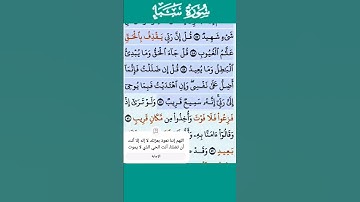 سُورَةُ سَبَإٍ
شَىْءٍ شَهِيدٌ ۝ قُلْ إِنَّ رَبِّى يَقْذِفُ بِٱلْحَقِّ
عَلَّٰمُ ٱلْغُيُوبِ ۝ قُلْ جَآءَ ٱلْحَقُّ وَمَا يُبْدِئُ
ٱلْبَٰطِلُ وَمَا يُعِيدُ ۝ قُلْ إِن ضَلَلْتُ فَإِنَّمَآ
أَضِلُّ عَلَىٰ نَفْسِى وَإِنِ ٱهْتَدَيْتُ فَبِمَا يُوحِىٓ
إِلَىَّ رَبِّىٓ إِنَّهُۥ سَمِيعٌ قَرِيبٌ ۝ وَلَوْ تَرَىٰٓ إِذْ
فَزِعُوا۟ فَلَا فَوْتَ وَأُخِذُوا۟ مِن مَّكَانٍ قَرِيبٍ ۝
وَقَالُوٓا۟ ءَامَنَّا بِهِۦ وَ
بَعِيدٍ ۝ وَقَدْ
اللهم إنا نعوذ بعزتك لا إله إلا أنت
أن تضلنا، أنت الحي الذي لا يموت
الإجابة